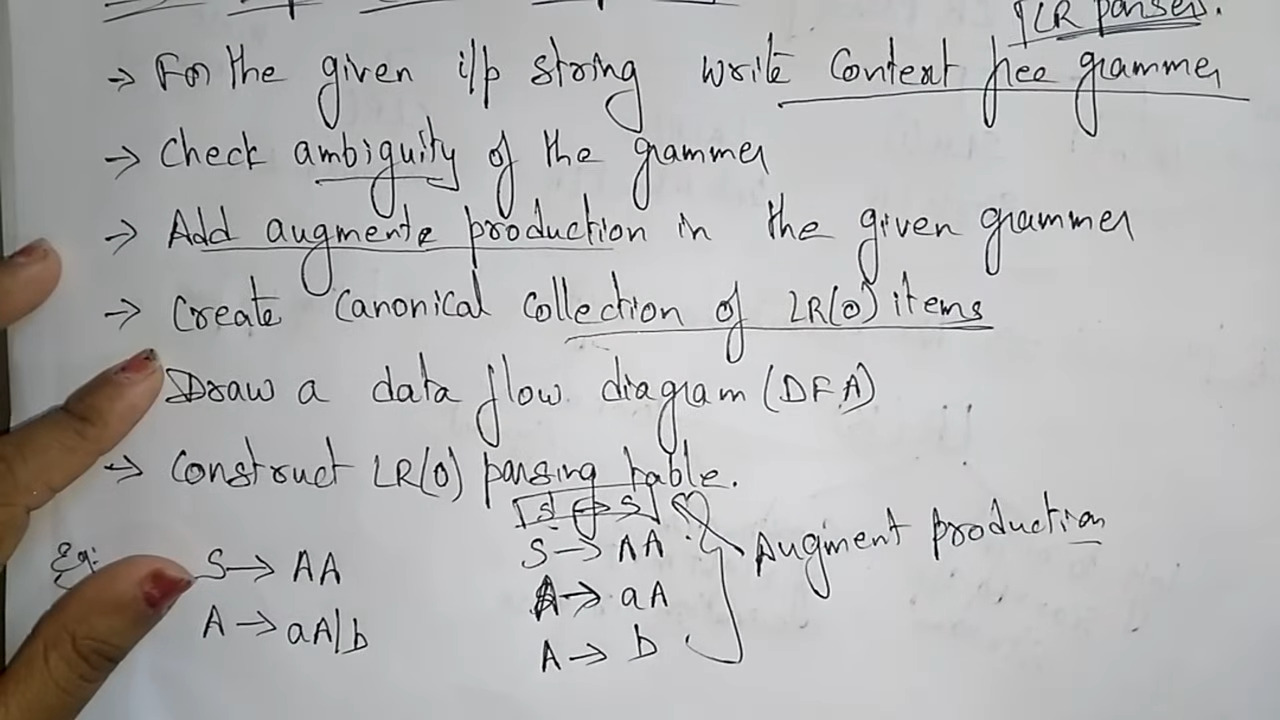 LR parser.
→ For the given i/p string write Context free grammer
→ Check ambiguity of the grammer
→ Add augmente production in the given grammer
→ Create Canonical Collection of LR(0) items
Draw a data flow diagram (DFA)
→ Construct LR(0) parsing table.
S' → S
Eg: S → AA S → AA Augment production
A → aA|b A → aA
A → b